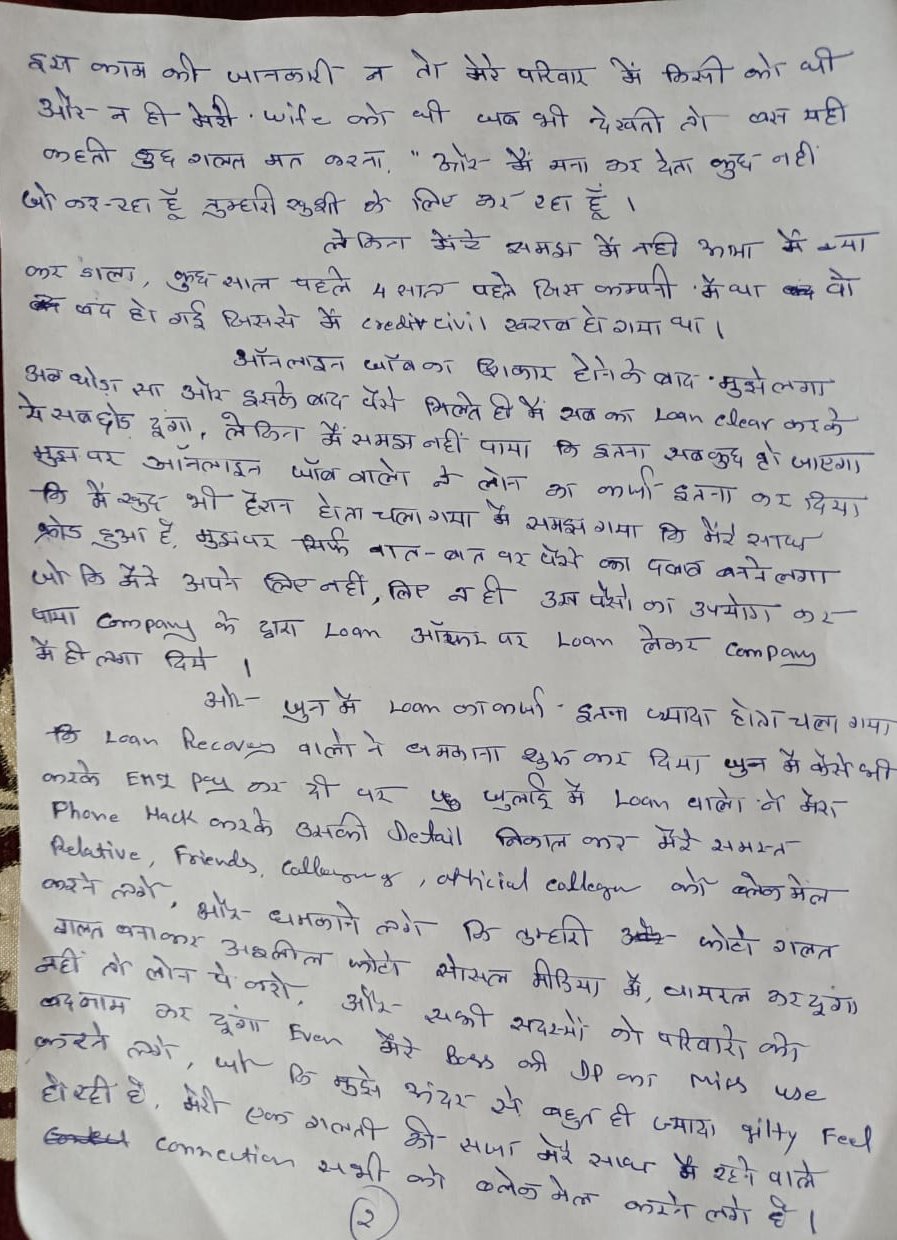 इस काम की जानकारी न तो मेरे परिवार में किसी को थी
और न ही मेरी wife को थी जब भी देखती तो बस यही
कहती कुछ गलत मत करना, " और मैं मना कर देता कुछ नहीं
जो कर रहा हूँ तुम्हारी खुशी के लिए कर रहा हूँ ।
लेकिन मेरे समझ में नही आया मैं क्या
कर डाला, कुछ साल पहले 4 साल पहले जिस कम्पनी में था वो
बंद हो गई जिससे में credit civil खराब हो गया था ।
ऑनलाइन जॉब का शिकार होने के बाद मुझे लगा
अब थोड़ा सा और इसके बाद पैसे मिलते ही मैं सब का Loan clear करके
ये सब छोड़ दूंगा, लेकिन मैं समझ नहीं पाया कि इतना सबकुछ हो जाएगा
मुझ पर ऑनलाइन जॉब वालो ने लोन का कर्जा इतना कर दिया
कि मैं खुद भी हैरान होता चला गया मैं समझ गया कि मेरे साथ
फ्रोड हुआ है, मुझपर सिर्फ बात-बात पर पैसे का दबाव बनने लगा
जो कि मैंने अपने लिए नहीं, लिए न ही उस पैसो का उपयोग कर
पाया Company के द्वारा Loan ऑफर पर Loan लेकर Company
में ही लगा दिये ।
और जुन में Loan का कर्जा इतना ज्यादा होता चला गया
कि Loan Recovery वालो ने धमकाना शुरू कर दिया जुन में कैसे भी
करके EMI Pay कर दी पर जुलाई में Loan वालो ने मेरा
Phone Hack करके उसकी Detail निकाल कर मेरे समस्त
Relative, Friends, official को ब्लेकमेल
करने लगे, और धमकाने लगे कि तुम्हारी फोटो गलत
गलत बनाकर अश्लील फोटो सोसल मीडिया में, वायरल कर दूंगा
नहीं तो लोन पे करो, और सभी सदस्यों को परिवारो को
बदनाम कर दूंगा Even मेरे Boss की DP का miss use
करने लगे, कि मुझे अंदर से बहुत ही ज्यादा gilty Feel
हो रही है, मेरी एक गलती की सजा मेरे साथ में रहने वाले
connection सभी को ब्लेकमेल करने लगे है ।
२